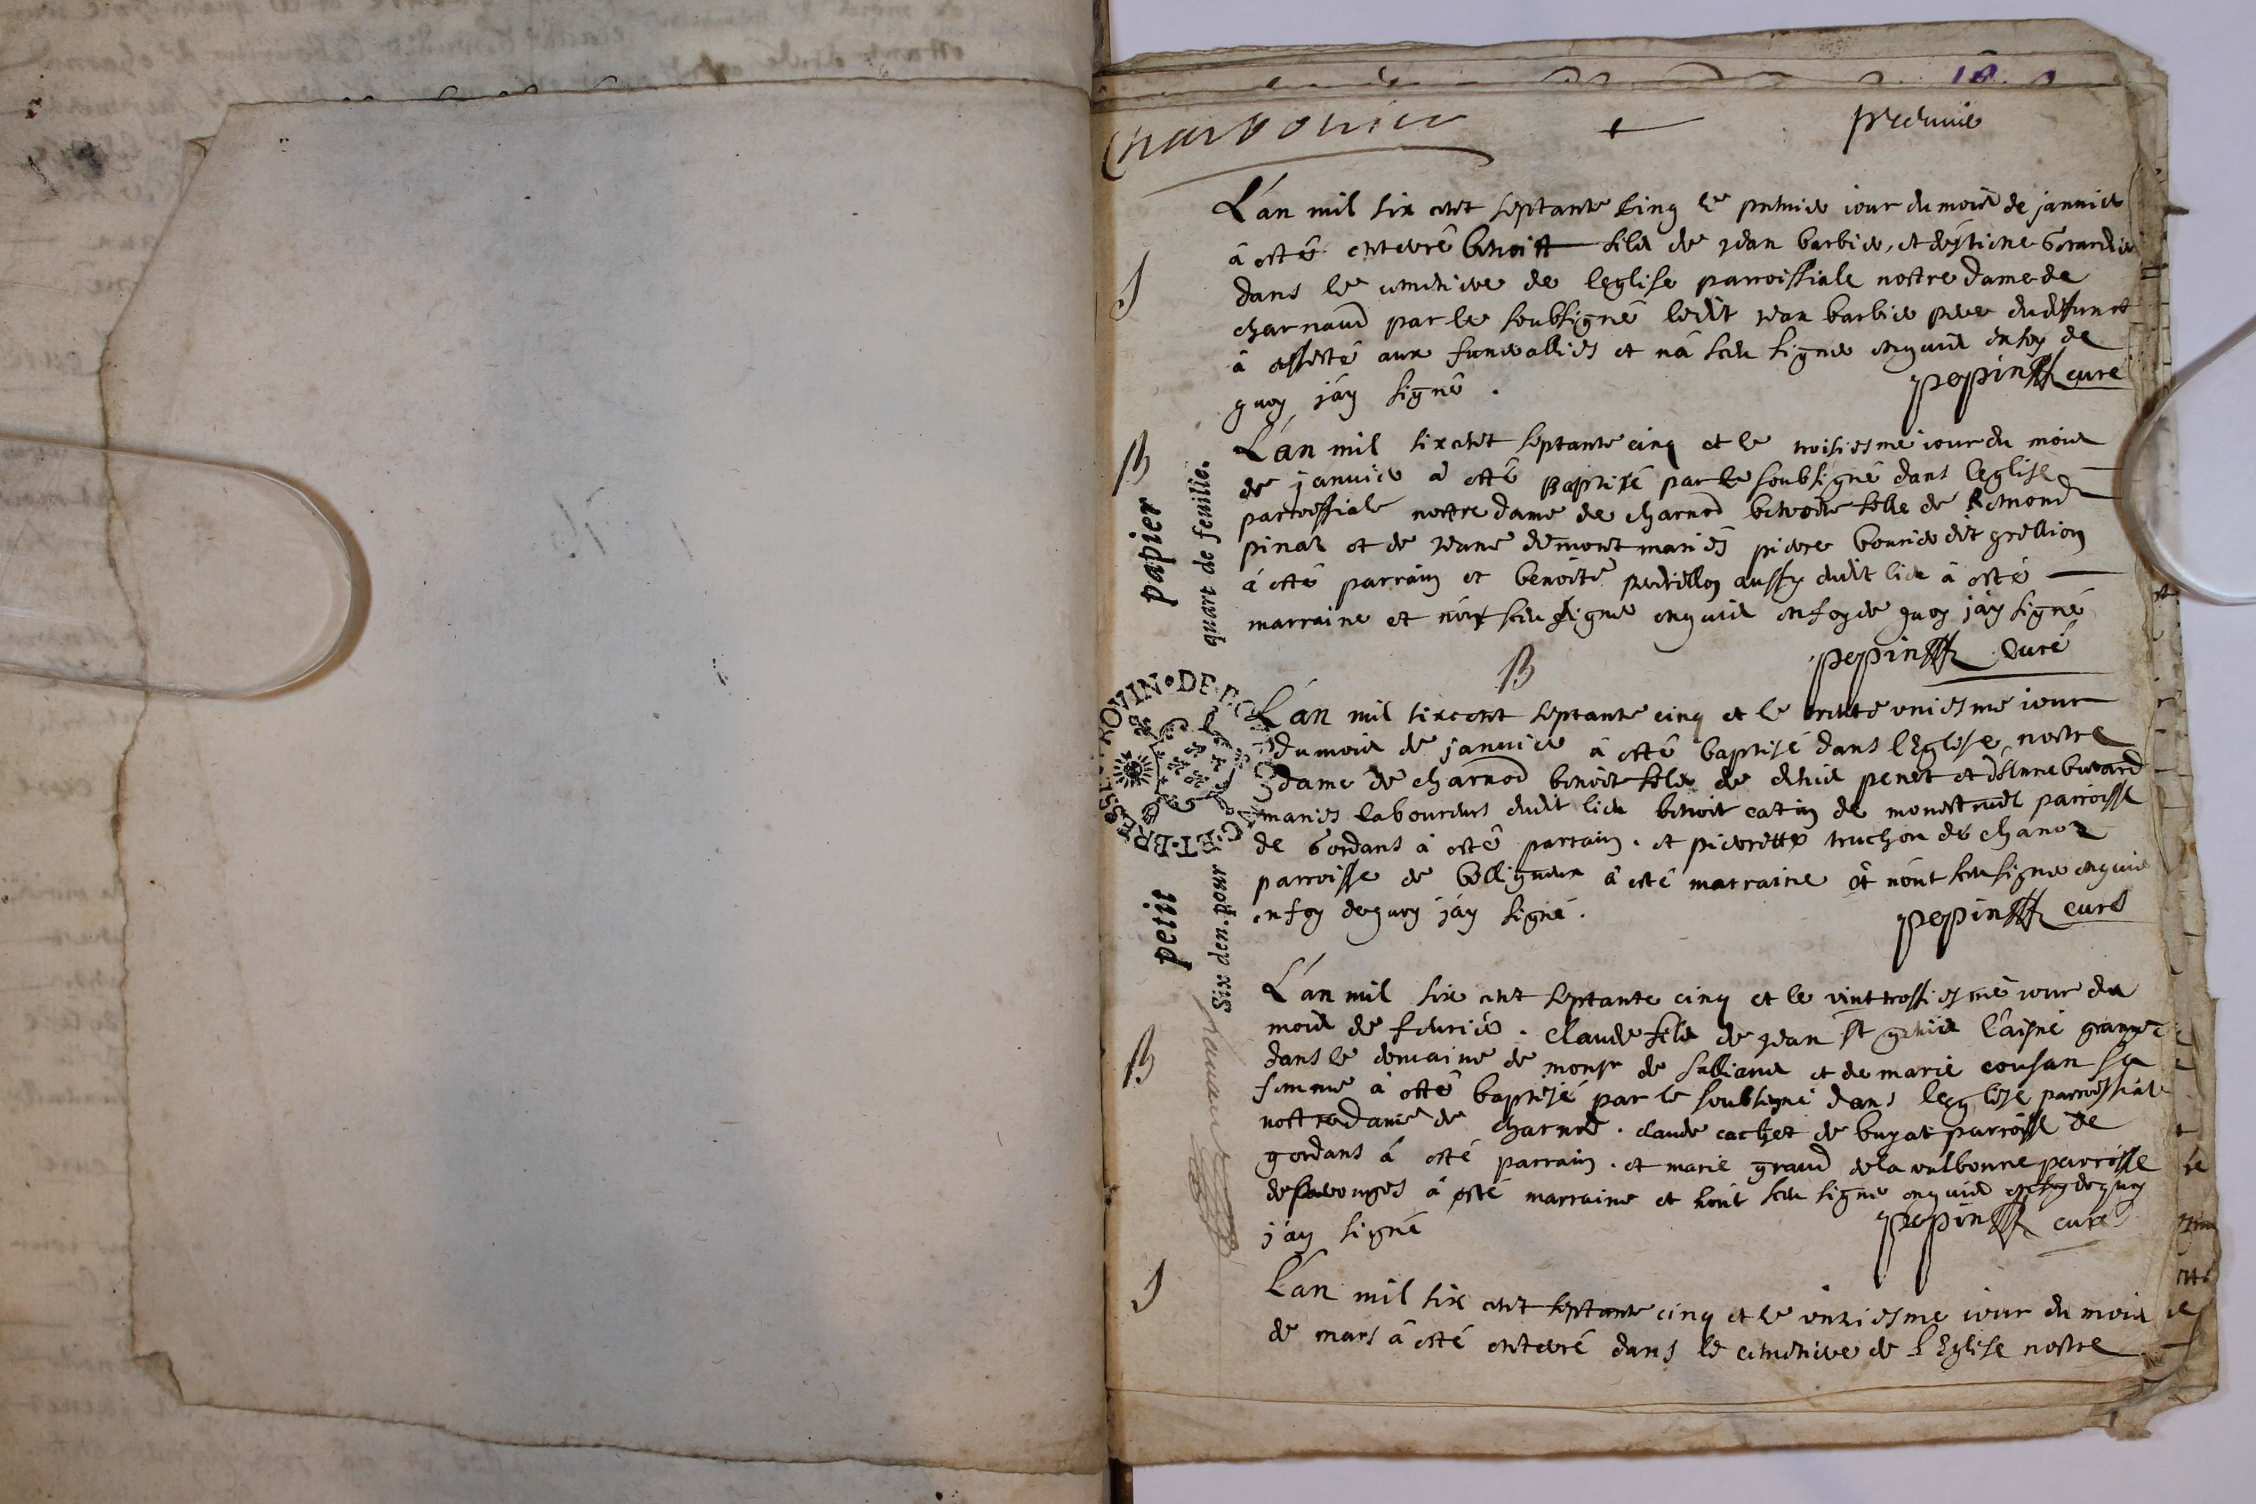 18.
Charbonier
premier
L'an mil six cent septante cinq le premier iour du mois de janvier
à esté enterré benoist fils de jean barbier, et d'estiene Girardin
dans le cimetiere de leglise parroissiale nostre dame de
charnaud par le soubsigné ledit jean barbier pere du deffunct
à assisté aux funerallies et n'a sceu signer enquis en foy de
quoy j'ay signé.
pepin curé
S
B
L'an mil six cent septante cinq et le troisiesme iour du mois
de janvier à esté Baptisé par le soubsigné dans leglise
parroissiale nostre dame de charnod benoite fille de Remond
pinat et de jeane demont mariés pierre bourier dit grillion
à esté parrain et benoite perdrillon aussy dudit lieu à esté
marraine et n'ont sceu signer enquis en foy de quoy j'ay signé
pepin Curé
B
L'an mil six cent septante cinq et le trente uniesme iour
du mois de janvier à esté baptisé dans l'Eglise nostre
dame de charnod benoit fils de denis penet et d'Anne buvard
mariés laboureurs dudit lieu benoit catin de monstruel parroisse
de Gordans à esté parrain. et pierrette truchon de chanoz
parroisse de belligneux à esté marraine et n'ont sceu signer enquis
en foy de quoy j'ay signé.
pepin curé
B
L'an mil six cent septante cinq et le vint troisiesme iour du
mois de fevrier. Claude fils de jean st genis l'aisné granger
dans le domaine de monsr de sallians et de marie cousan sa
femme à esté baptisé par le soubsigné dans leglise parroissiale
nostre dame de charnod. claude cachet de buyat parroisse de
gordans à esté parrain. et marie graud de la valbonne parroisse
de faverges à esté marraine et n'ont sceu signer enquis en foy de quoy
j'ay signé
pepin curé
S
L'an mil six cent septante cinq et le unziesme iour du mois
de mars à esté enterré dans le cimetiere de l'Eglise nostre
petit papier
Six den. pour quart de feuille.
PROVIN. DE BOURGOG. ET. BRESSE